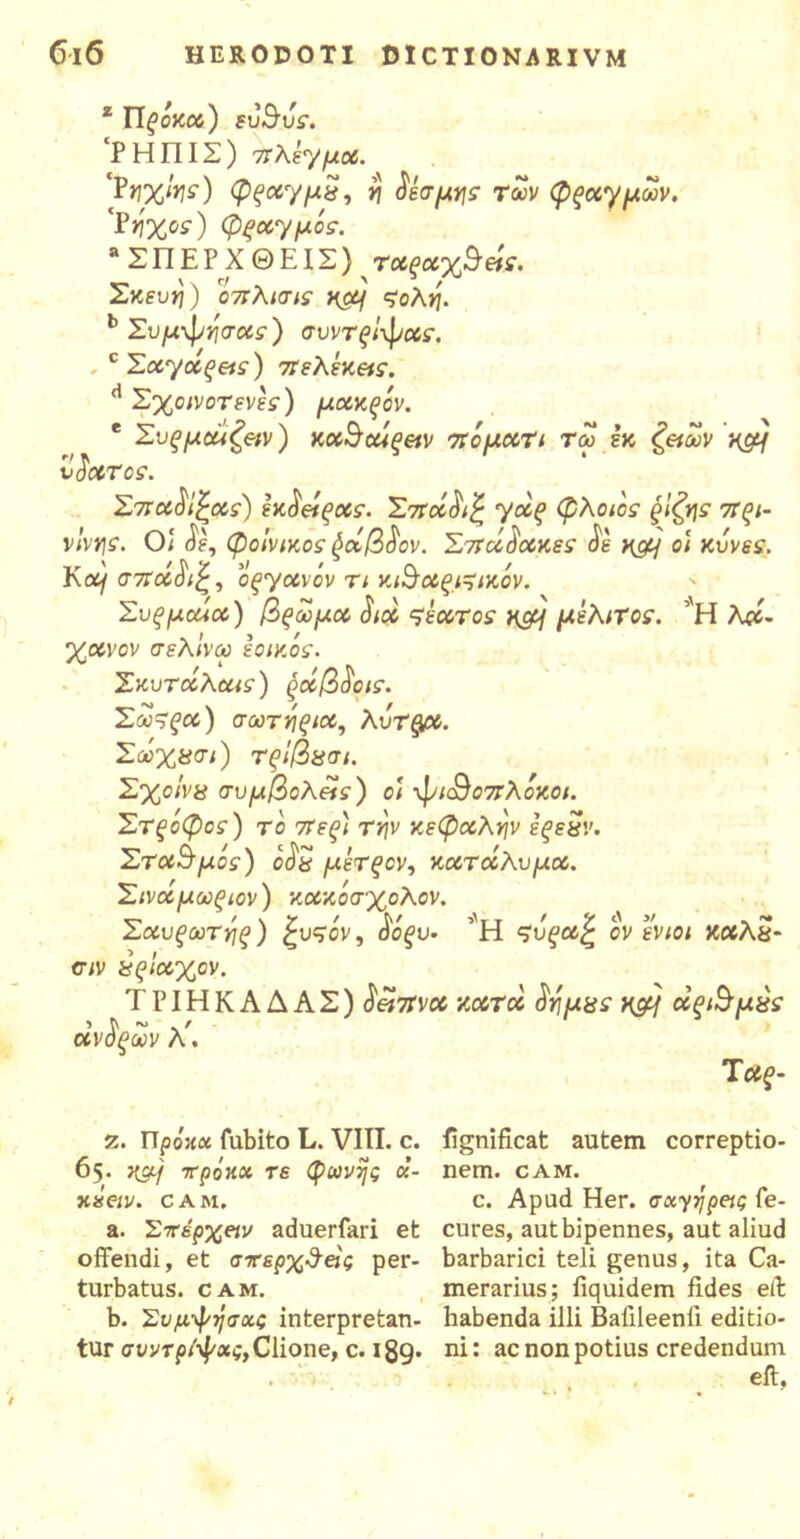 616 HERODOTI DICTIONARIVM
ᶻ Πρόκα) εὐθύς.
ῬΗΠΙΣ) πλέγμα.
Ῥηχίης) φραγμȣ͂, ἢ δέσμης τῶν φραγμῶν.
Ῥῆχος) φραγμός.
ᵃ ΣΠΕΡΧΘΕΙΣ) ταραχθείς.
Σκευὴ) ὅπλισις καὶ ϛολή.
ᵇ Συμψήσας) συντρίψας.
ᶜ Σαγάρεις) πελέκεις.
ᵈ Σχοινοτενὲς) μακρόν.
ᵉ Συρμαΐζειν) καθαίρειν πόματι τῷ ἐκ ζειῶν καὶ
ὕδατος.
Σπαδίξας) ἐκδείρας. Σπάδιξ γὰρ φλοιὸς ῥίζης πρι-
νίνης. Οἱ δὲ, φοίνικος ῥάβδον. Σπάδακες δὲ καὶ οἱ κύνες.
Καὶ σπάδιξ, ὄργανόν τι κιθαριϛικόν.
Συρμαία) βρῶμα διὰ ϛέατος καὶ μέλιτος. Ἢ λά-
χανον σελίνῳ ἐοικός.
Σκυτάλαις) ῥάβδοις.
Σῶϛρα) σωτήρια, λύτρα.
Σώχȣσι) τρίβȣσι.
Σχοίνȣ συμβολεῖς) οἱ ψιαθοπλόκοι.
Στρόφος) τὸ περὶ τὴν κεφαλὴν ἐρεȣ͂ν.
Σταθμός) ὁδȣ͂ μέτρον, κατάλυμα.
Σινάμωριον) κακόσχολον.
Σαυρωτὴρ) ξυϛόν, δόρυ. Ἢ ϛύραξ ὃν ἔνιοι καλȣ͂-
σιν ȣ̓ρίαχον.
ΤΡΙΗΚΑΔΑΣ) δεῖπνα κατὰ δήμȣς καὶ ἀριθμȣ̀ς
ἀνδρῶν λʹ.
Ταρ-
z. Πρόκα fubito L. VIII. c.
65. καὶ πρόκα τε φωνῆς ἀ-
κȣ́ειν. CAM.
a. Σπέρχειν aduerfari et
offendi, et σπερχθεὶς per-
turbatus. CAM.
b. Συμψήσας interpretan-
tur συντρίψας, Clione, c. 189.
fignificat autem correptio-
nem. CAM.
c. Apud Her. σαγήρεις fe-
cures, aut bipennes, aut aliud
barbarici teli genus, ita Ca-
merarius; fiquidem fides eft
habenda illi Bafileenfi editio-
ni: ac non potius credendum
eft,